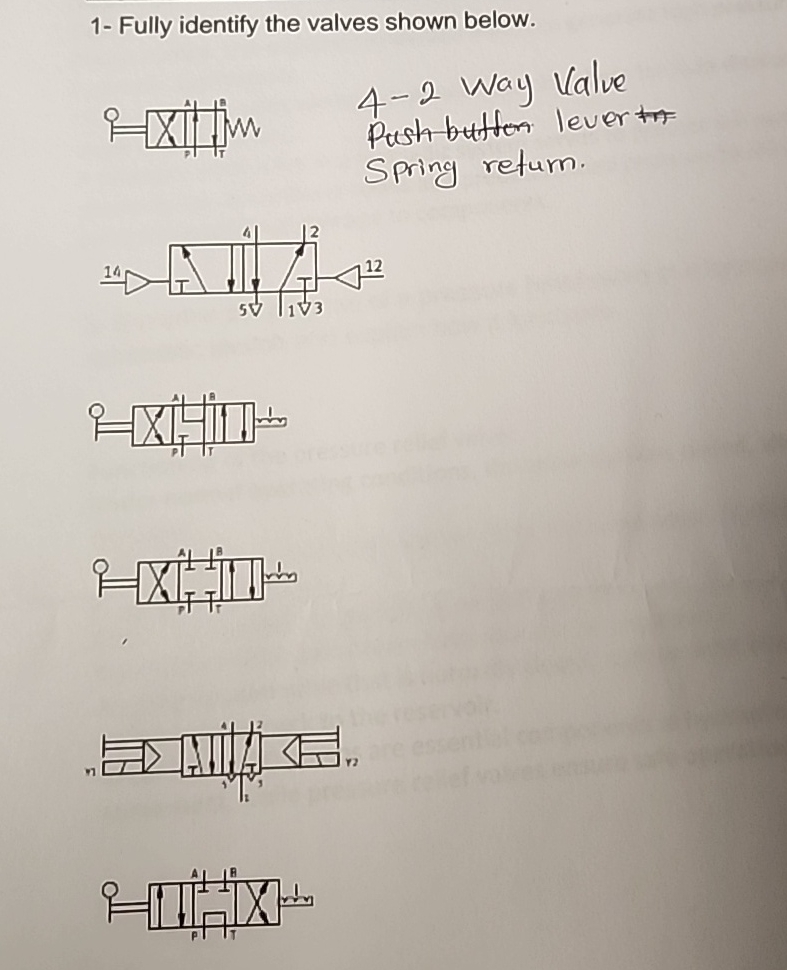 1- Fully identify the valves shown below.
A B
4-2 Way Valve
Push button lever to
Spring return.
P T
4 2
14 12
5 1 3
A B
P T
A B
P T
4 2
Y1 Y2
5 3
1
A B
P T